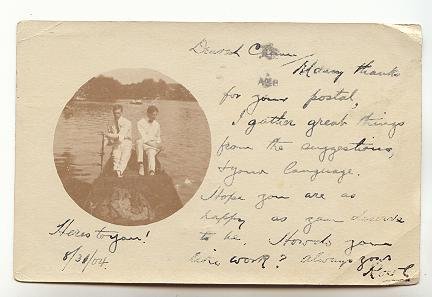 Dearest
Many thanks
for your postal,
I gather great things
from the suggestions,
& your language.
Hope you are as
happy as you deserve
to be. How do you
like work? Always yours
Here's to you!
8/30/04.